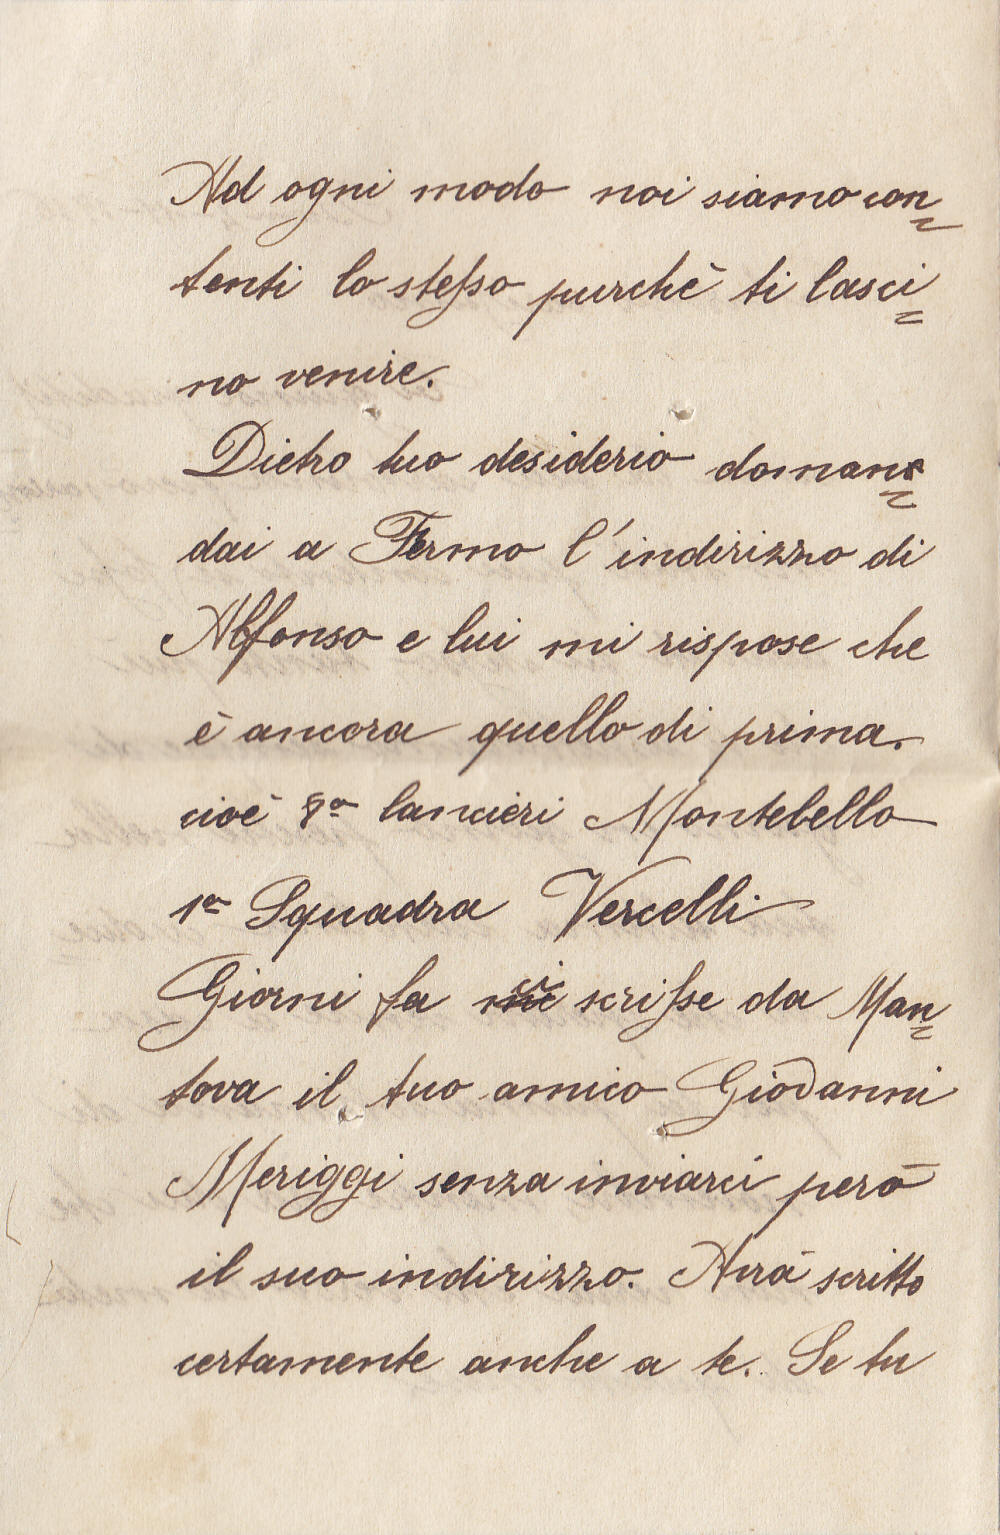 Ad ogni modo noi siamo con=
tenti lo stesso purchè ti lasci=
no venire.
Dietro tuo desiderio doman=
dai a Fermo l'indirizzo di
Alfonso e lui mi rispose che
è ancora quello di prima.
cioè 8º lancieri Montebello
1ª Squadra Vercelli
Giorni fa ci scrisse da Man=
tova il tuo amico Giovanni
Meriggi senza inviarci però
il suo indirizzo. Avrà scritto
certamente anche a te. Se tu